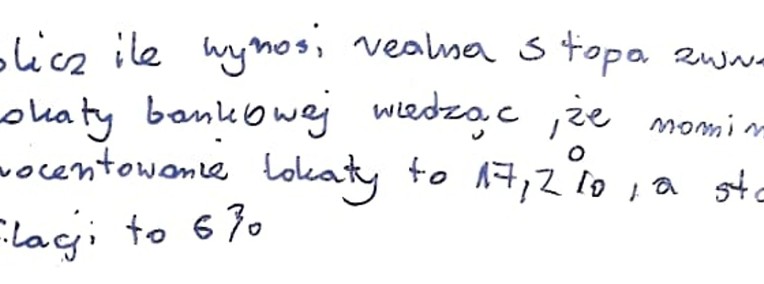 olicz ile wynosi realna stopa zwr
okaty bankowej wiedząc, że nomin
rocentowanie lokaty to 17,2%, a sto
flacji to 6%